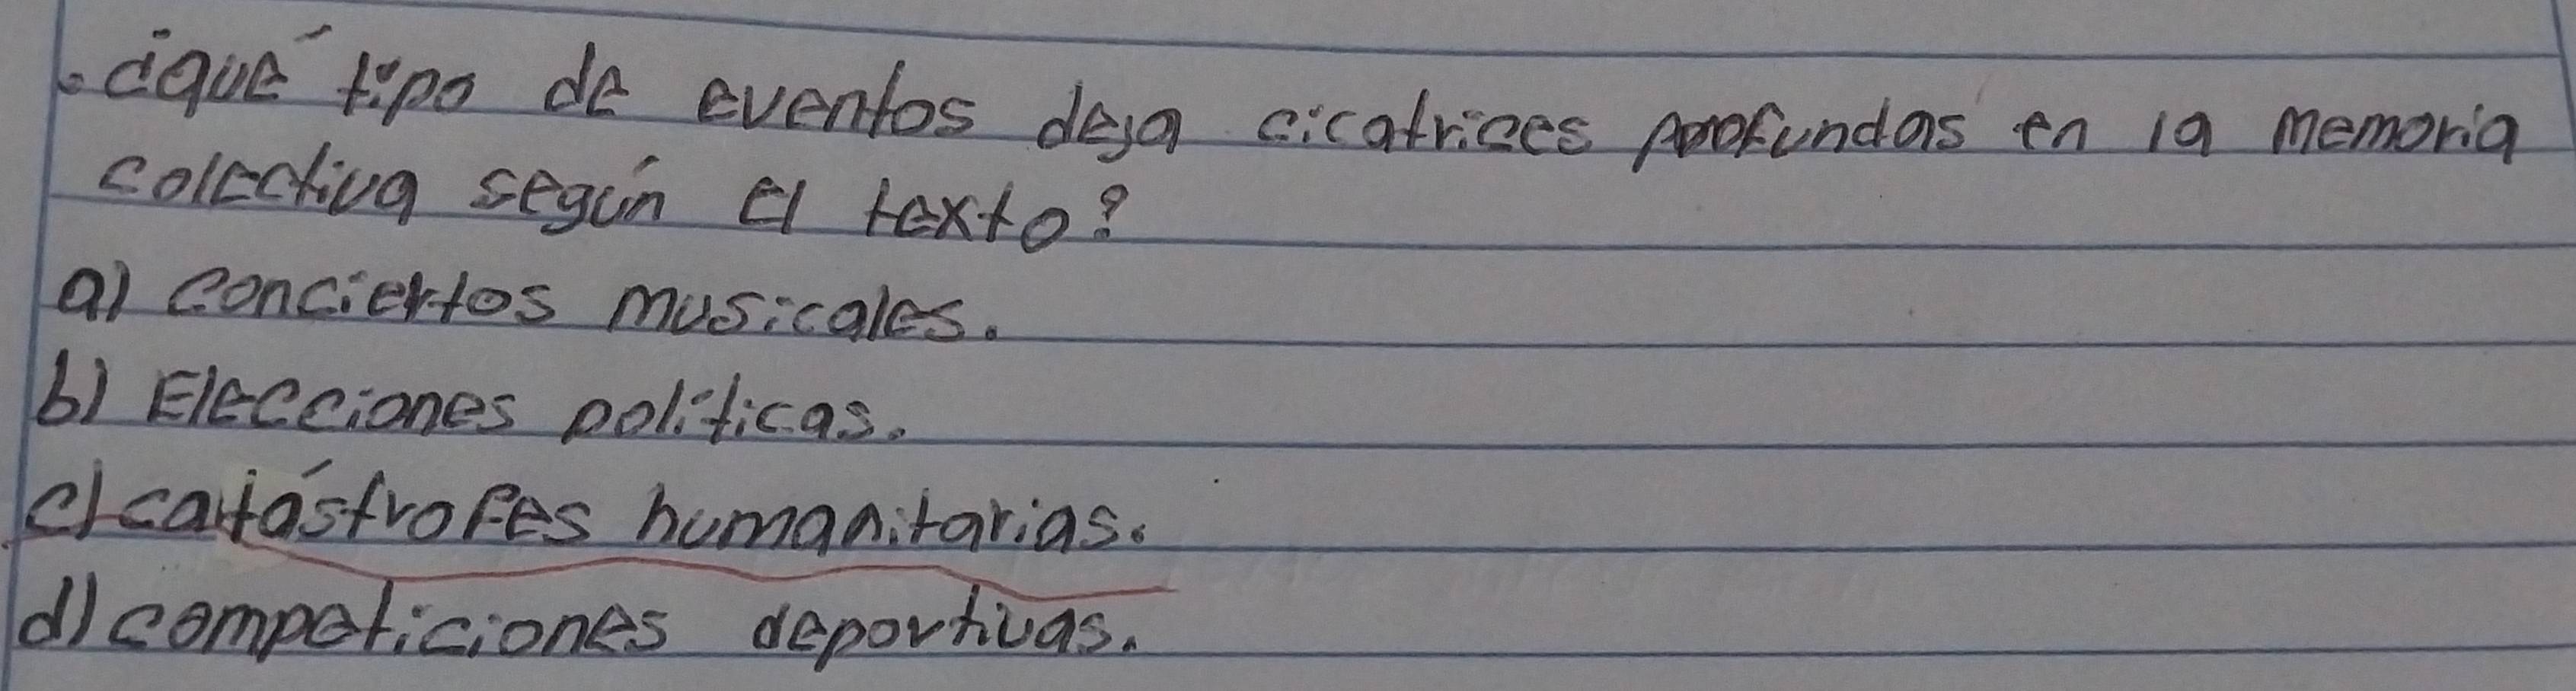 . ¿qué tipo de eventos deja cicatrices profundas en la memoria
colectiva según el texto?
a) conciertos musicales.
b) Elecciones políticas.
c) catástrofes humanitarias.
d) competiciones deportivas.